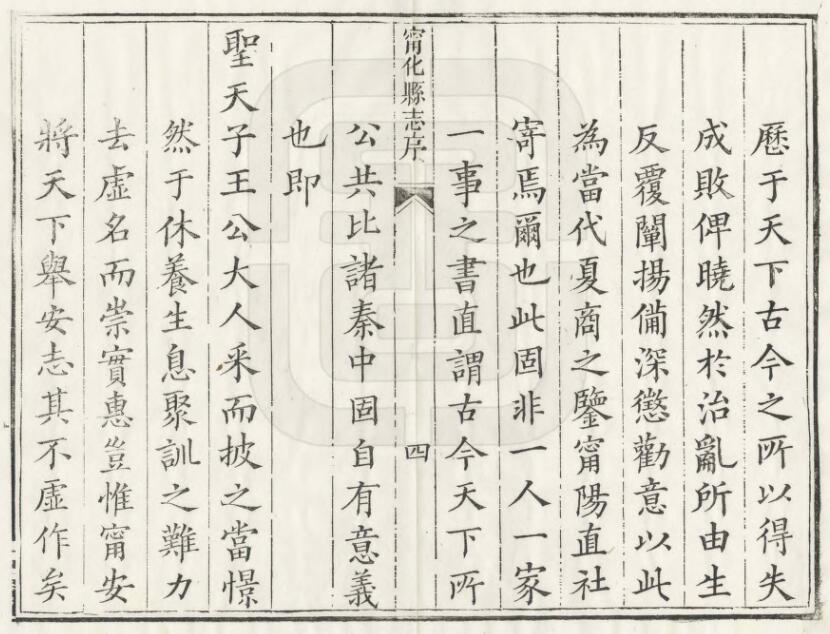 歷于天下古今之所以得失
成敗俾曉然於治亂所由生
反覆闡揚備深懲勸意以此
為當代夏商之鑒甯陽直社
寄焉爾也此固非一人一家
一事之書直謂古今天下所
甯化縣志序
四
公共比諸秦中固自有意義
也即
聖天子王公大人采而披之當憬
然于休養生息聚訓之難力
去虛名而崇實惠豈惟甯安
將天下舉安志其不虛作矣